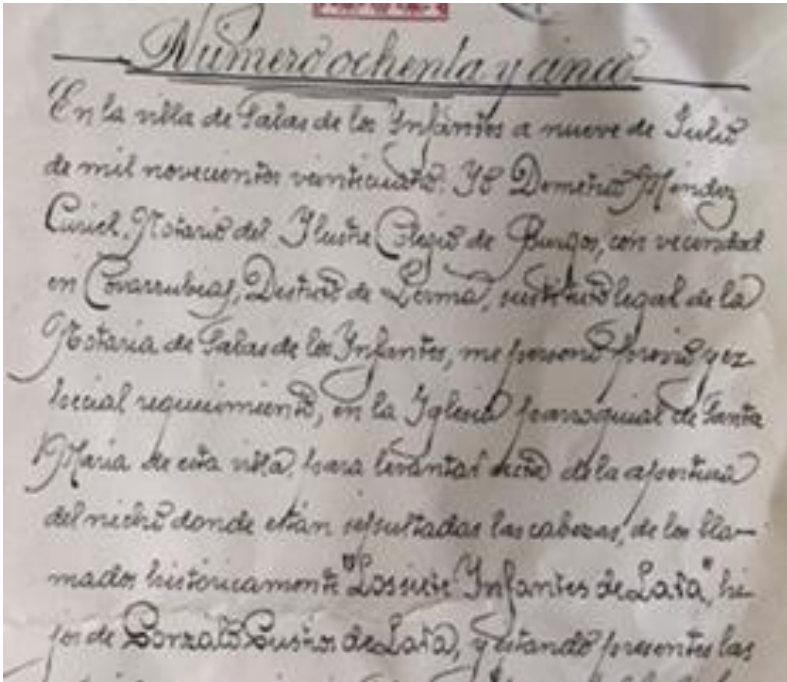 Número ochenta y cinco
En la villa de Salas de los Infantes a nueve de Julio
de mil novecientos veinticuatro. Yo Demetrio Méndez
Curiel, Notario del Ilustre Colegio de Burgos, con vecindad
en Covarrubias, Distrito de Lerma, sustituto legal de la
Notaria de Salas de los Infantes, me persono previo y ez-
pecial requerimiento, en la Iglesia parroquial de Santa
Maria de esta villa, para levantar acta de la apertura
del nicho donde están sepultadas las cabezas, de los lla-
mados históricamente "Los siete Infantes de Lara", hi-
jos de Gonzalo Gustios de Lara, y estando presentes las